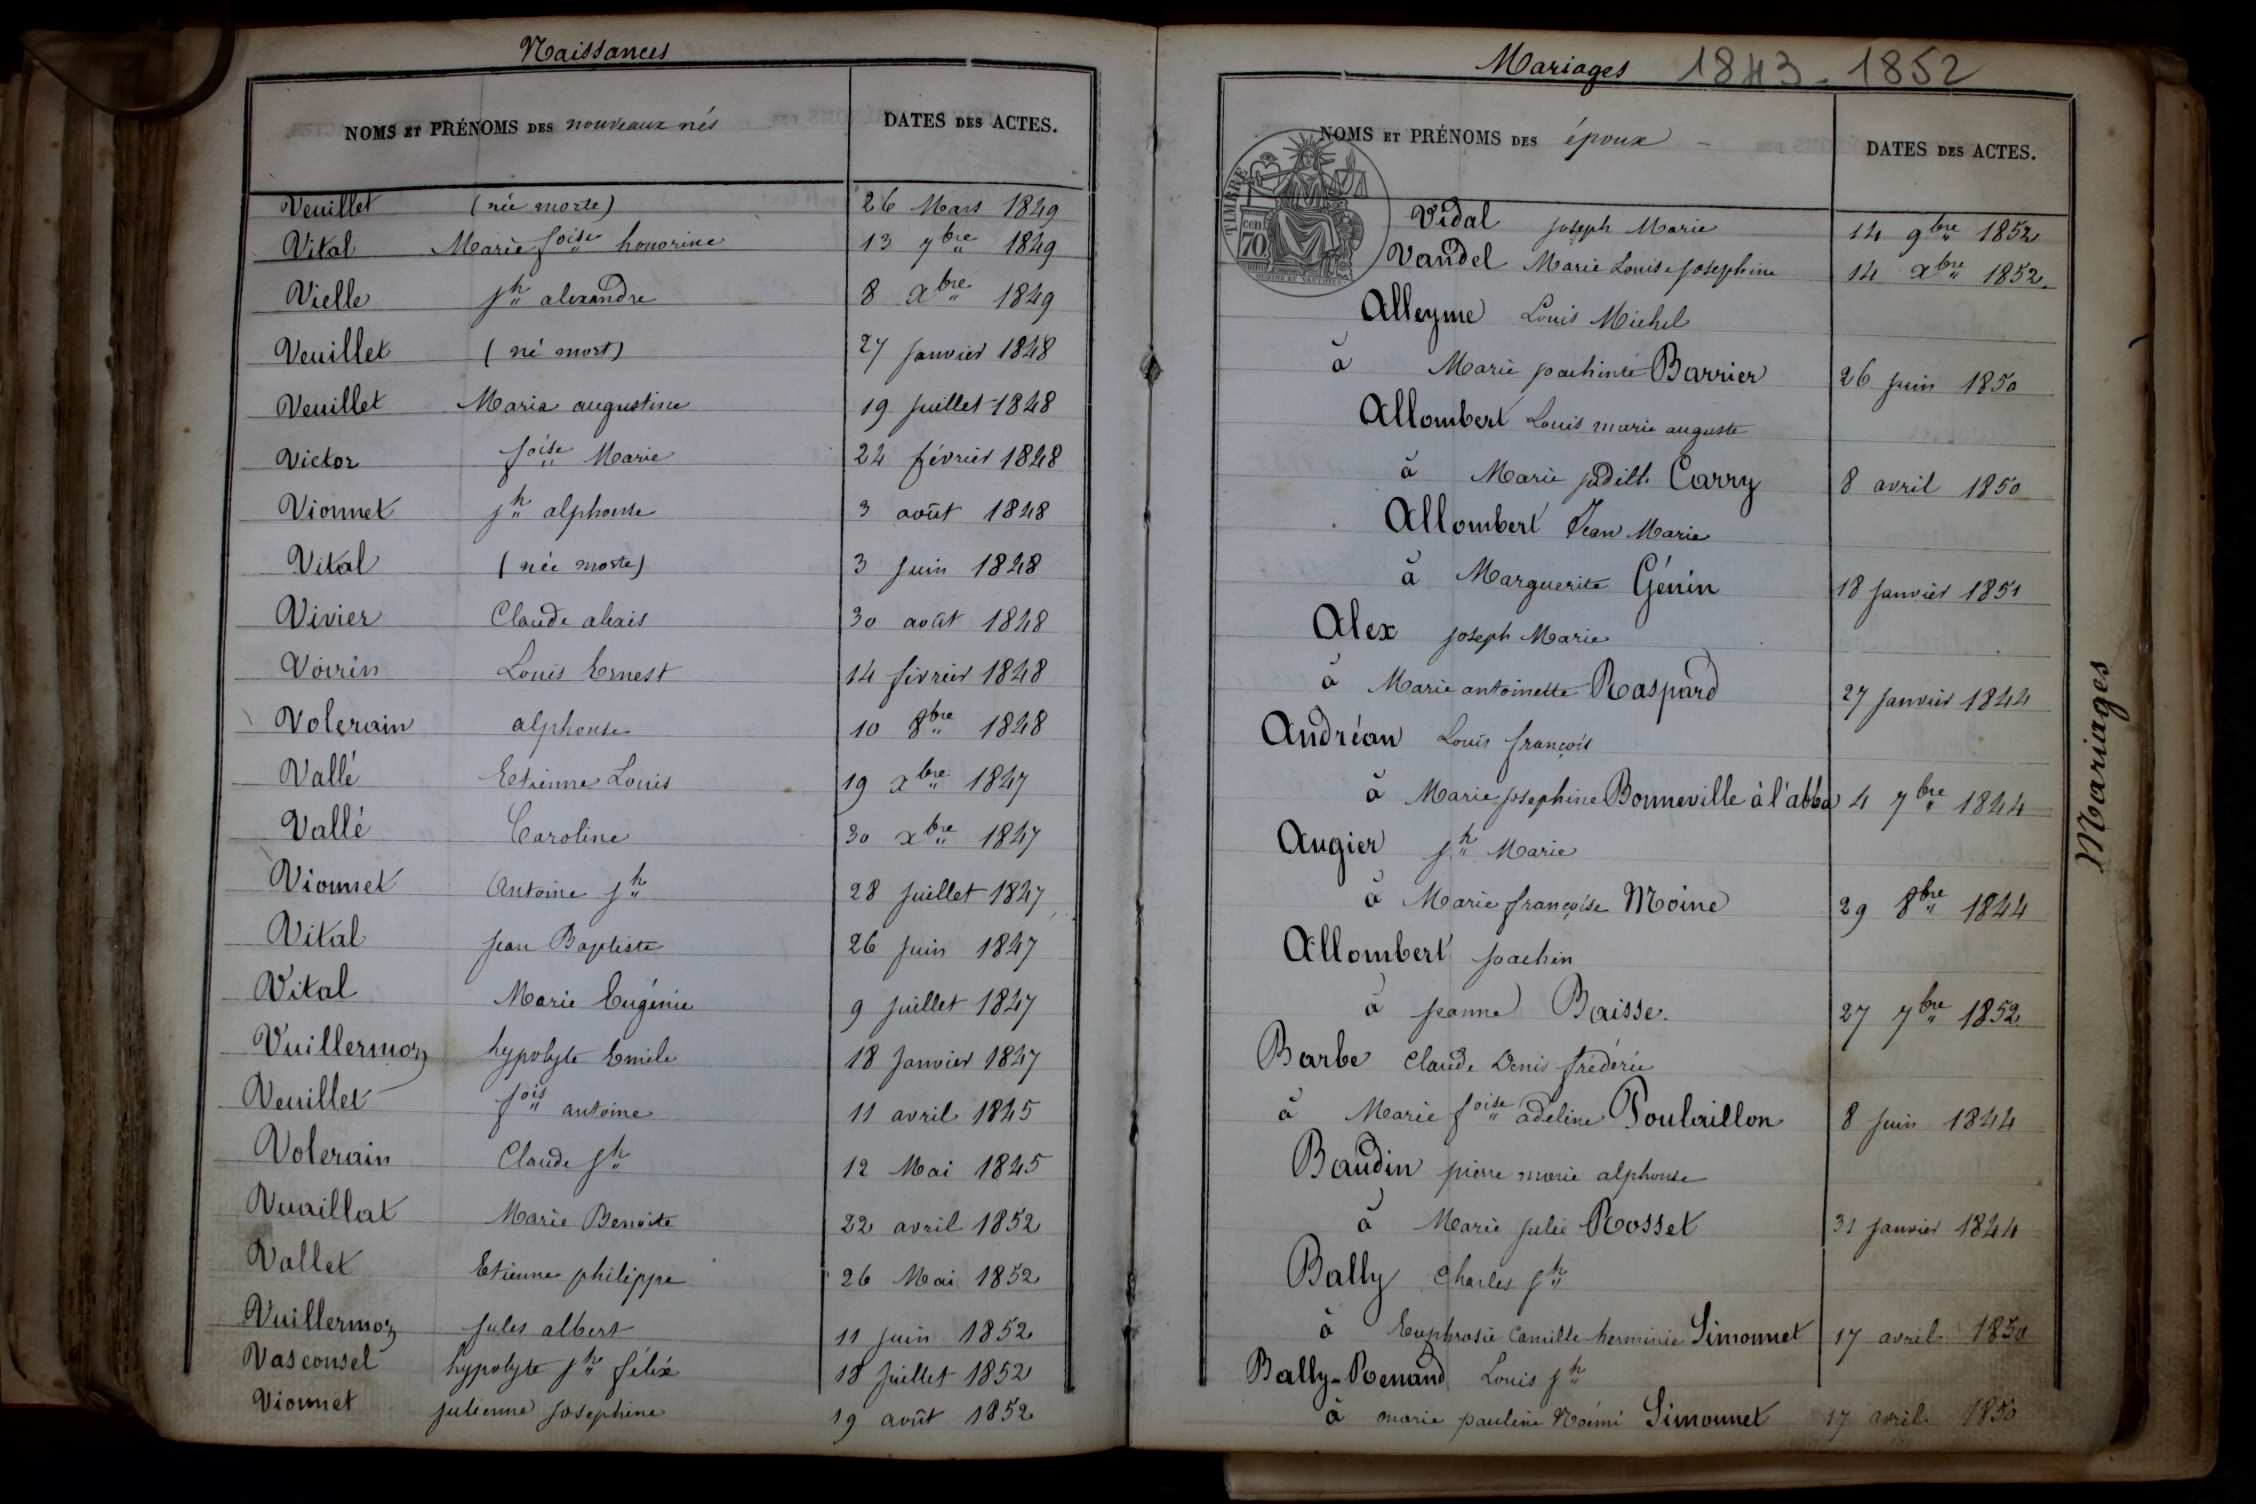 Naissances
NOMS ET PRÉNOMS DES nouveaux nés DATES DES ACTES.
Veuillet (née morte) 26 Mars 1849
Vital Marie foise honorine 13 7bre 1849
Vielle jh alexandre 8 Xbre 1849
Veuillet (né mort) 27 janvier 1848
Veuillet Maria augustine 19 juillet 1848
Victor foise Marie 24 février 1848
Vionnet jh alphonse 3 août 1848
Vital (née morte) 3 juin 1848
Vivier Claude alexis 30 août 1848
Voirin Louis Ernest 14 février 1848
Volerain alphonse 10 8bre 1848
Vallé Etienne Louis 19 xbre 1847
Vallé Caroline 30 xbre 1847
Vionnet Antoine jh 28 juillet 1847
Vital jean Baptiste 26 juin 1847
Vital Marie Eugénie 9 juillet 1847
Vuillermoz hypolyte Emile 18 janvier 1847
Veuillet fois antoine 11 avril 1845
Volerain Claude jh 12 Mai 1845
Vuaillat Marie Benoite 22 avril 1852
Vallet Etienne philippe 26 Mai 1852
Vuillermoz jules albert 11 juin 1852
Vasconsel hypolyte jh félix 18 juillet 1852
Vionnet julienne josephine 19 août 1852
Mariages 1843-1852
NOMS ET PRÉNOMS DES époux DATES DES ACTES.
TIMBRE
70 cen
Vidal joseph Marie 14 9bre 1852
Vandel Marie Louise josephine 14 xbre 1852
Alleyme Louis Michel
à Marie joachinte Barrier 26 juin 1850
Allombert Louis marie auguste
à Marie judith Carry 8 avril 1850
Allombert Jean Marie
à Marguerite Génin 18 janvier 1851
Alex joseph Marie
à Marie antoinette Raspard 27 janvier 1844
Andréan Louis françois
à Marie josephine Bonneville à l'abba 4 7bre 1844
Augier jh Marie
à Marie françoise Moine 29 8bre 1844
Allombert joachin
à jeanne Baisse. 27 7bre 1852
Barbe Claude Denis frédéric
à Marie foise adeline Poulaillon 8 juin 1844
Baudin pierre marie alphonse
à Marie julie Rosset 31 janvier 1844
Bally Charles jh
à Euphrasie Camille herminie Simonnet 17 avril 1850
Bally-Renand Louis jh
à marie pauline Noémi Simonnet 17 avril 1850
Mariages